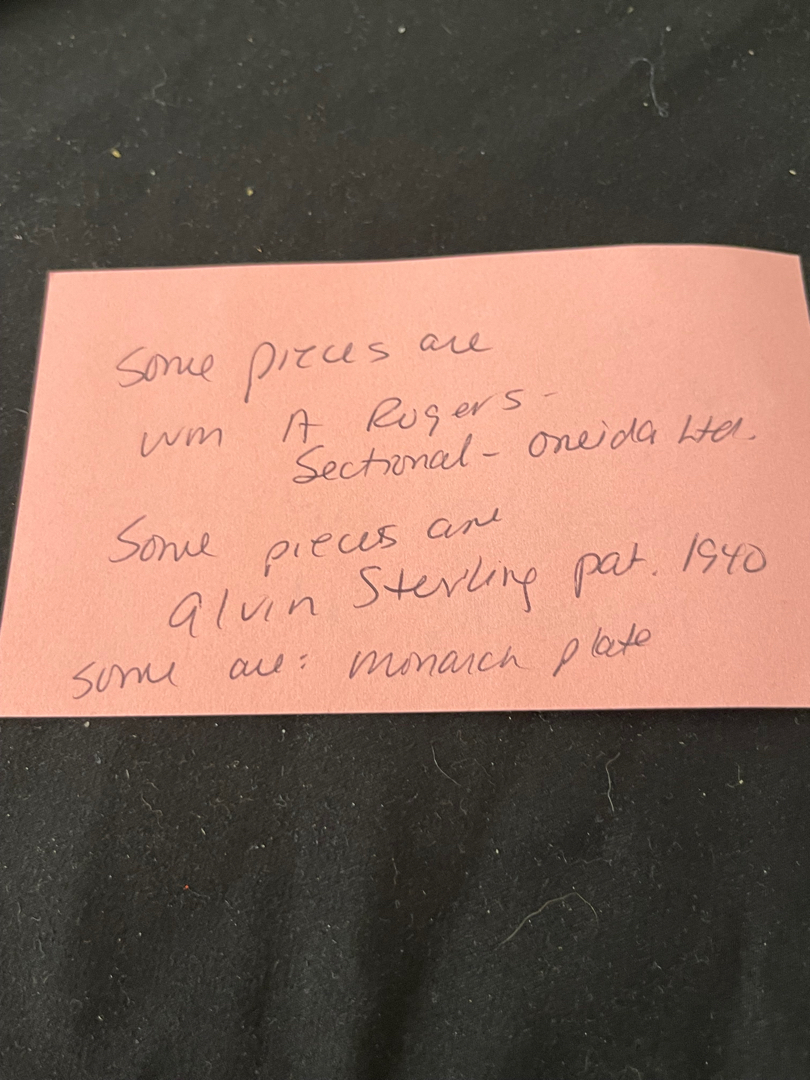 Some pieces are
wm A Rogers -
Sectional - oneida Ltd.
Some pieces are
alvin Sterling pat. 1940
some are: monarch plate